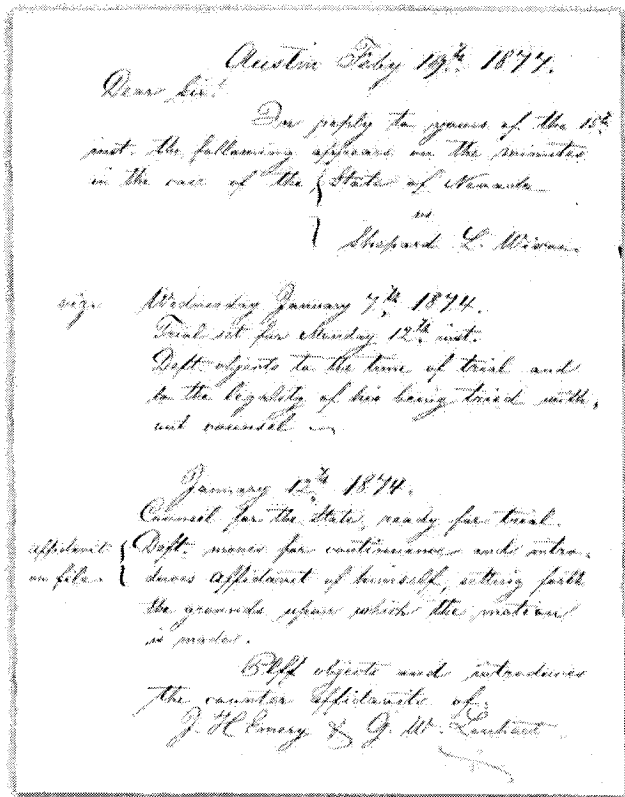 Austin Feby 19th 1877.
Dear Sir:
In reply to yours of the 15th
inst. the following appears on the minutes
in the case of the { State of Nevada
vs
Shepard L. Wixom
viz. Wednesday January 7th 1874.
Trial set for Monday 12th inst.
Deft. objects to the time of trial and
to the legality of his being tried with-
out counsel
January 12th 1874.
Counsel for the State, ready for trial.
affidavit { Deft. moves for continuance and intro-
on file. duces affidavit of himself, setting forth
the grounds upon which the motion
is made.
Plff objects and introduces
the counter affidavits of
J. H Emery & G. W.